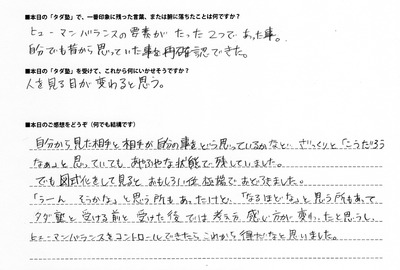 ■本日の「タダ塾」で、一番印象に残った言葉、または腑に落ちたことは何ですか？
ヒューマンバランスの要素がたった2つであった事。
自分でも昔から思っていた事を再確認できた。
■本日の「タダ塾」を受けて、これから何にいかせそうですか？
人を見る目が変わると思う。
■本日のご感想をどうぞ（何でも結構です）
自分から見た相手と相手が自分の事をどう思っているかなど、ざっくりと「こうだろう
なぁ」と思っていても あやふやな状態で残していました。
でも図式化をして見ると、おもしろい位極端でおどろきました。
「うーん そうかな」と思う所もあったけど、「なるほどな」と思う所もあって
タダ塾を受ける前と受けた後では考え方、感じ方が変わったと思うし、
ヒューマンバランスをコントロールできたら これから得だなと思いました。